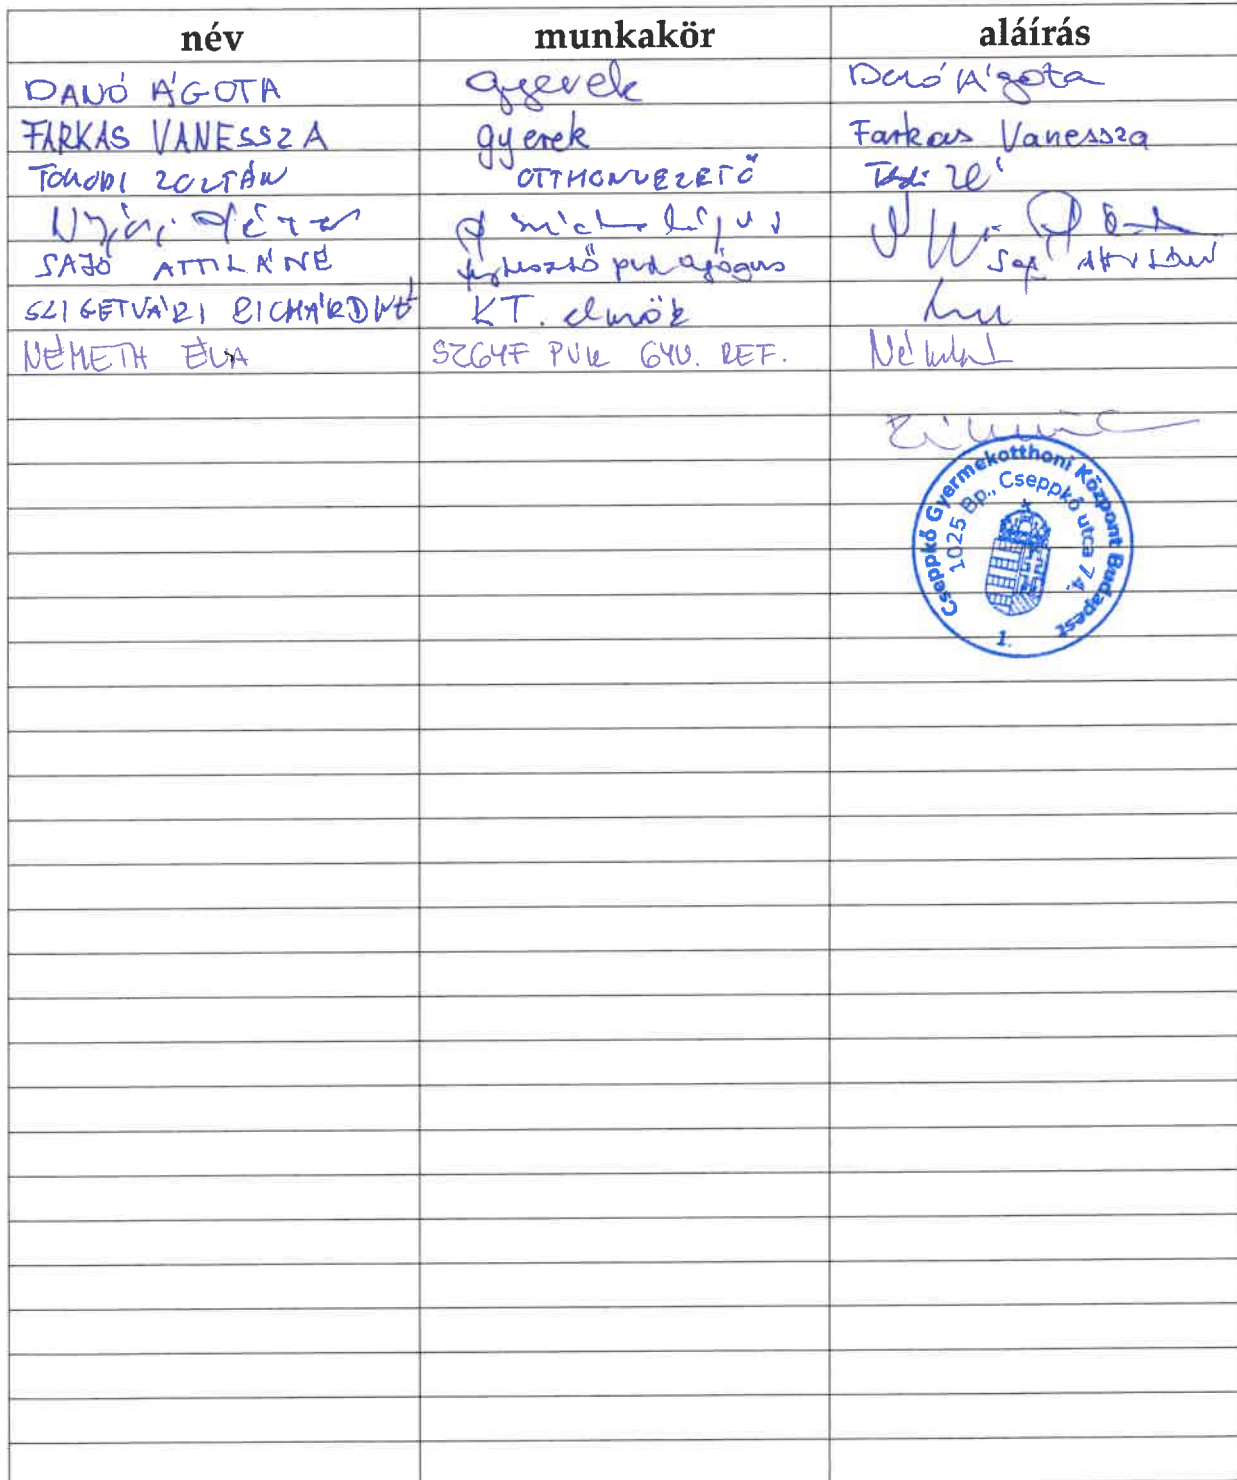 név munkakör aláírás
DANÓ ÁGOTA gyerek Danó Ágota
FARKAS VANESSZA gyerek Farkas Vanessza
TOHODI ZOLTÁN OTTHONVEZETŐ
Péter
SAJÓ ATTILÁNÉ fejlesztő pedagógus
SZIGETVÁRI RICHÁRDNÉ KT. elnök
NÉMETH ÉVA SZGYF PVK GYV. REF.
Cseppkő Gyermekotthoni Központ Budapest
1025 Bp., Cseppkő utca 74.
1.